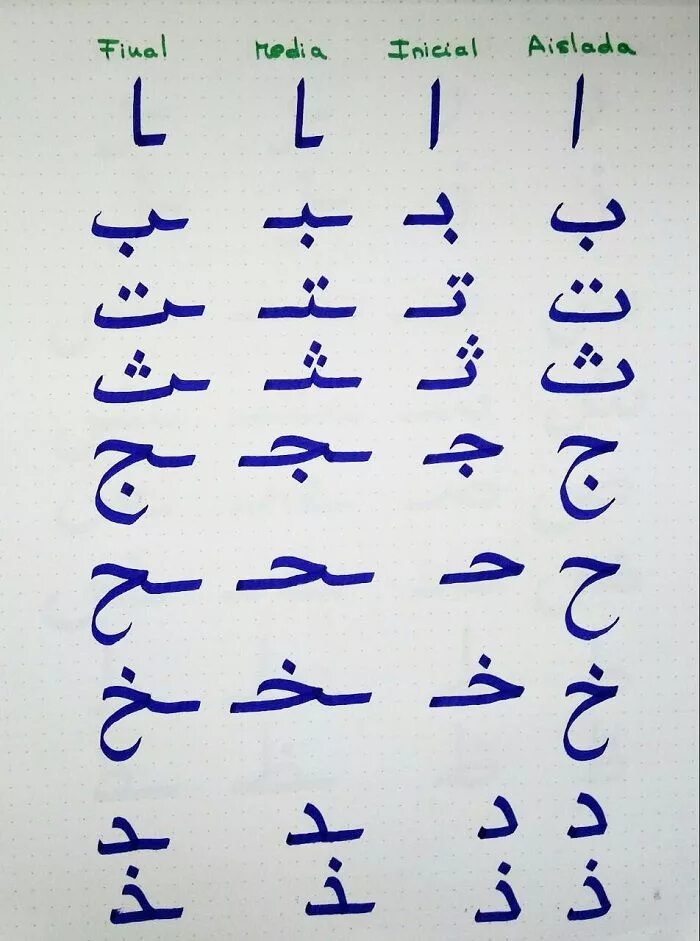 Final Media Inicial Aislada
ـا ـا ا ا
ـب ـبـ بـ ب
ـت ـتـ تـ ت
ـث ـثـ ثـ ث
ـج ـجـ جـ ج
ـح ـحـ حـ ح
ـخ ـخـ خـ خ
ـد ـد د د
ـذ ـذ ذ ذ